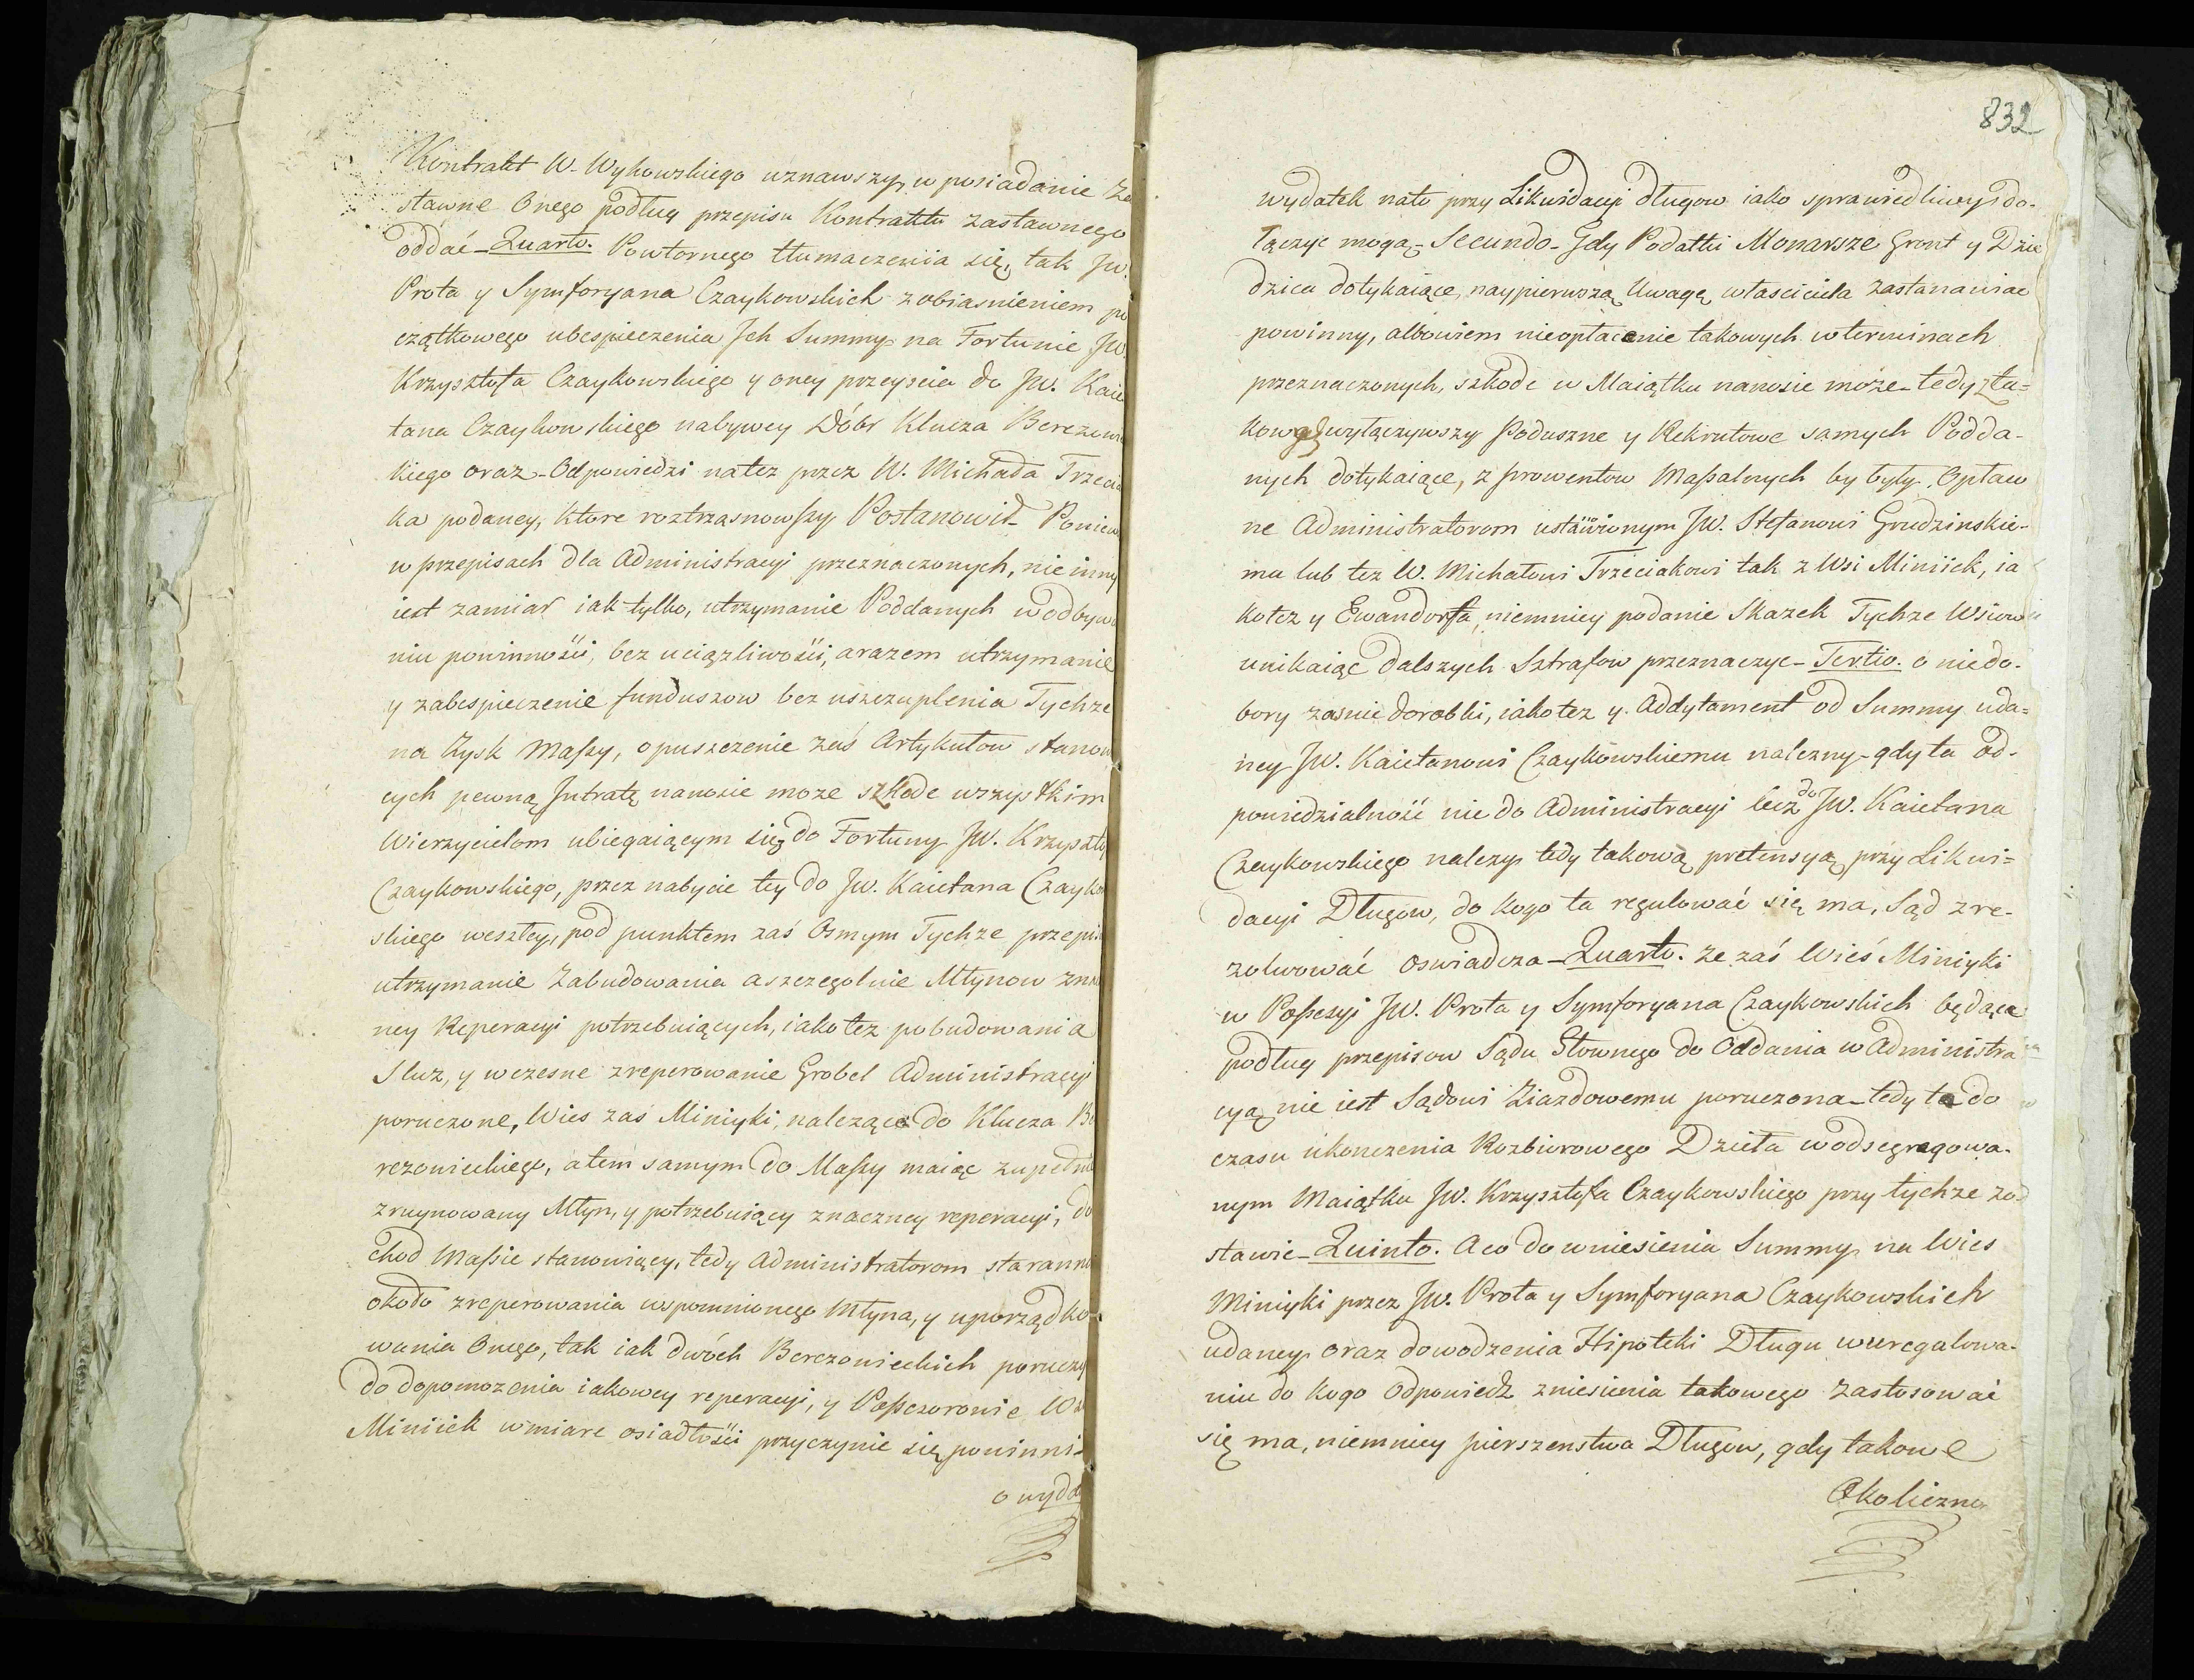 Kontrakt W. Wykowskiego uznawszy, w posiadanie Za
stawne Onego podług przepisu Kontraktu zastawnego
oddać - Quarto. Powtornego tłumaczenia się, tak JW.
Prota y Symforyana Czaykowskich z obiasnieniem po
czątkowego ubespieczenia Jch Summy na Fortunie JW.
Krzysztofa Czaykowskiego y oney przeyscia do JW. Kaie
tana Czaykowskiego nabywcy Dóbr Klucza Berezowie
kiego oraz - Odpowiedzi natez przez W. Michała Trzecia
ka podaney, ktore roztrząsnowszy Postanowił - Poniew
w przepisach dla Administracyi przeznaczonych, nie inny
iest zamiar iak tylko, utrzymanie Poddanych w odbywa
niu powinności, bez uciązliwości, a razem utrzymanie
y zabespieczenie funduszow bez uszczuplenia Tychze
na Zysk Massy, opuszczenie zaś Artykułow stanow
cych pewną Jntratę nanosic moze szkode wszystkim
Wierzycielom ubiegaiącym się do Fortuny JW. Krzyszto
Czaykowskiego, przez nabycie tey do JW. Kaietana Czayko
skiego weszłey, pod punktem zaś Osmym Tychze przepis
utrzymanie Zabudowania a szczegolnie Młynow zna
ney Reperacyi potrzebuiących, iako tez pobudowania
Sluz, y wczesne zreperowanie Grobel Administracyi
poruczone, Wies zas Miniyki, nalezące do Klucza Be
rezowieckiego, a tem samym do Massy maiąc zupełnie
zruynowany Młyn, y potrzebuiący znaczney reperacyi, do
chod Massie stanowiący, tedy Administratorom staranno
około zreperowania wspomnionego Młyna, y uporządko
wania Onego, tak iak dwóch Berezowieckich poruczy
do dopomozenia iakowey reperacyi, y Possesorowie Wsi
Miniick w miare osiadłości przyczynic się powinni -
o wyda
832
wydatek nato przy Likwidacyi długow iako sprawiedliwy do-
łączyc mogą - Secundo - Gdy Podatki Monarsze Gront y Dzie
dzica dotykaiące, naypierwszą Uwagę własciciela zastanawiac
powinny, albowiem nieopłacenie takowych w terminach
przeznaczonych, szkode w Maiątku nanosic moze - tedy z ta=
kowych wyłączywszy Poduszne y Rekrutowe samych Podda-
nych dotykaiące, z prowentow Massalnych by były Opłaco
ne Administratorom ustanowionym JW. Stefanowi Grudzinskie-
mu lub tez W. Michałowi Trzeciakowi tak z Wsi Miniick, ia
kotez y Ewandorfa, niemniey podanie Skazek Tychze Wsiow
unikaiąc dalszych Sztrafow przeznaczyc - Tertio. o niedo-
bory zasnie dorobki, iako tez y Addytament od Summy uda=
ney JW. Kaietanowi Czaykowskiemu nalezny - gdy ta od-
powiedzialność nie do Administracyi lecz do JW. Kaietana
Czaykowskiego nalezy, tedy takową pretensyą przy Likwi=
dacyi Długow, do kogo ta regulować się ma, Sąd zre-
zolwować oswiadcza - Quarto. Ze zaś Wieś Miniyki
w Possesyi JW. Prota y Symforyana Czaykowskich będąca
podług przepisow Sądu Głownego do Oddania w Administra
cyą nie iest Sądowi Ziazdowemu poruczona - tedy ta do
czasu ukonczenia Rozbiorowego Dzieła w odsegregowa-
nym Maiątku JW. Krzysztofa Czaykowskiego przy tychze zo-
stawie - Quinto. A co do wniesienia Summy na Wies
Miniyki przez JW. Prota y Symforyana Czaykowskich
udaney, oraz dowodzenia Hipoteki Długu w uregulowa-
niu do kogo Odpowiedz zniesienia takowego zastosować
się ma, niemniey pierszenstwa Długow, gdy takowe
Okoliczno